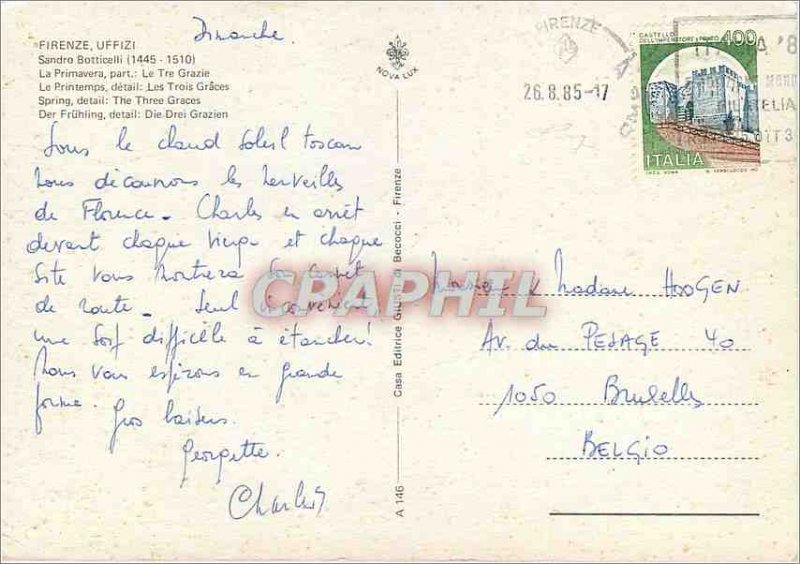 Dimanche.
FIRENZE, UFFIZI
Sandro Botticelli (1445 - 1510)
La Primavera, part.: Le Tre Grazie
Le Printemps, détail: Les Trois Grâces
Spring, detail: The Three Graces
Der Frühling, detail: Die Drei Grazien
NOVA LUX
FIRENZE
26.8.85-17
CASTELLO
DELL'IMPERATORE PRATO
400
ITALIA
Sous le chaud Soleil toscan
nous découvrons les merveilles
de Florence. Charles en arrêt
devant chaque Vierge et chaque
Site vous montrera son carnet
de route. Seul inconvénient
une Soif difficile à étancher!
Nous vous espérons en grande
forme. Gros baisers.
Georgette.
Charles
CPAPHIL
Casa Editrice Giusti di Becocci - Firenze
A 146
Monsieur & Madame HOOGEN
Av. du PESAGE 40
1050 Bruxelles
BELGIO